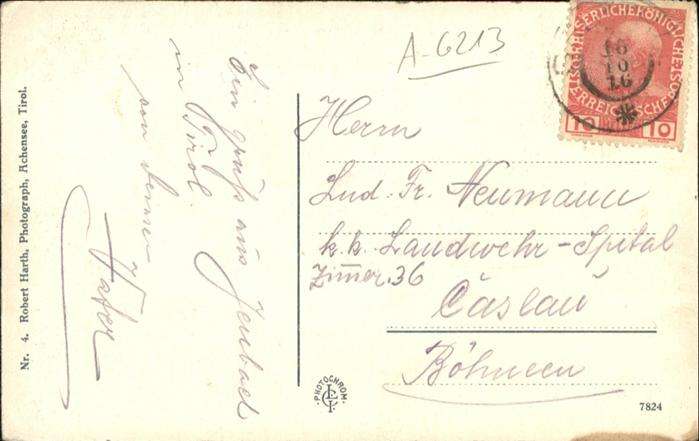 A-6213
Ein gruß aus Jenbach
in Tirol.
von deinem
Vater
Herrn
Lud. Fr. Neumann
k. k. Landwehr-Spital
Zimmer 36
Čáslau
Böhmen
Nr. 4. Robert Harth, Photograph, Achensee, Tirol.
PHOTOCHROM.
7824
KAISERLICHE KÖNIGLICHE ÖSTERREICHISCHE POST
10 10
16
10
16